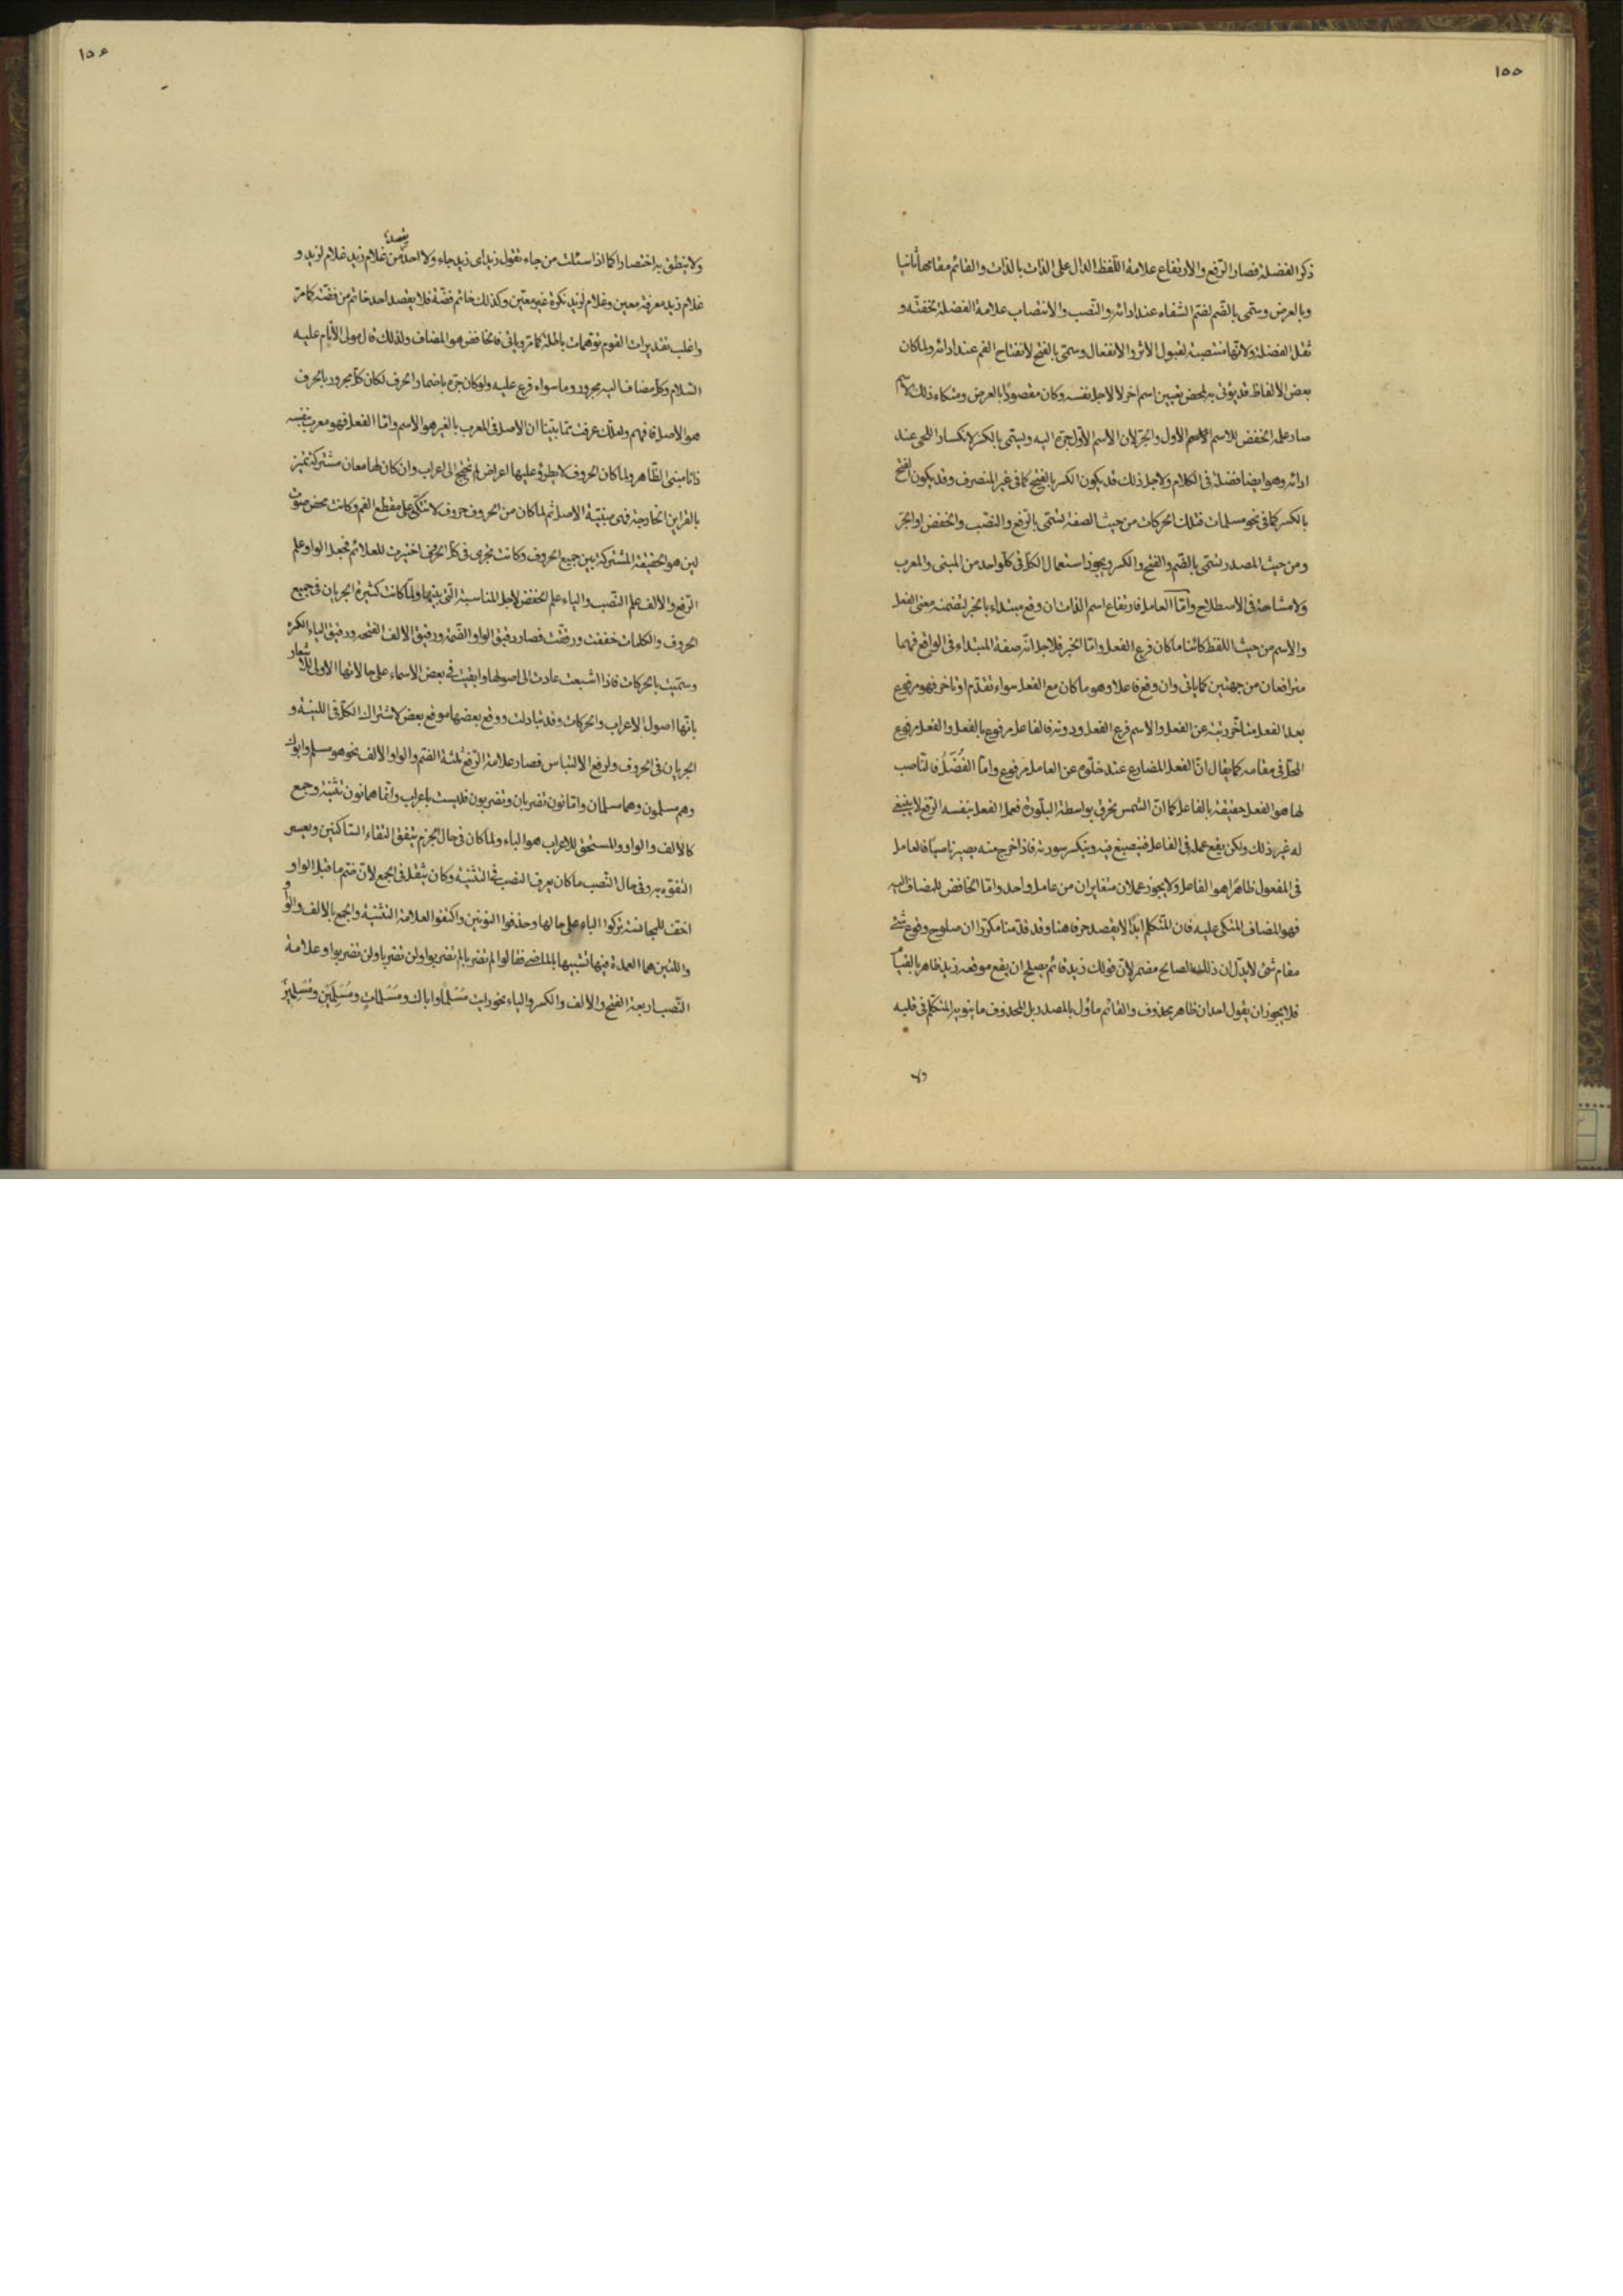 ١٥٥
ذكر الفضلة فصار الرفع والارتفاع علامة اللّفظ الدال على الذات بالذات والقائم مقامها ثانيا
وبالعرض وسمّى بالضّم لضمّ الشفاه عند ادائه والنّصب والانتصاب علامة الفضلة لخفّته و
ثقل الفضلة ولانّها منتصبة لقبول الاثر والانفعال وسمّى بالفتح لانفتاح الفم عند ادائه ولما كان
بعض الالفاظ قد يؤتى به لمحض تعيين اسم اخر لا لاجل نفسه وكان مقصودًا بالعرض ومتكاء ذلك الاسم
صار علمه الخفض للاسم الاول والجرّ لان الاسم الاوّل جرّه اليه ويسمّى بالكسر لانكسار اللحى عند
ادائه وهو ايضا فضلة فى الكلام ولاجل ذلك قد يكون الكسر بالفتح كما فى غير المنصرف وقد يكون الفتح
بالكسر كما فى نحو مسلمات فتلك الحركات من حيث الصفة تسمّى بالرفع والنّصب والخفض او الجرّ
ومن حيث المصدر تسمّى بالضّم والفتح والكسر ويجوز استعمال الكلّ فى كلّ واحد من المبنى والمعرب
ولا مشاحة فى الاصطلاح وامّا العامل فارتفاع اسم الذات ان وقع مبتداء بالخبر لتضمنه معنى الفعل
والاسم من حيث اللفظ كائنا ما كان فرع الفعل وامّا الخبر فلاجل انّه صفة المبتداء فى الواقع فهما
مترافعان من جهتين كما ياتى وان وقع فاعلا وهو ما كان مع الفعل سواء تقدّم او تاخر فهو مرفوع
بعد الفعل متاخّر رتبته عن الفعل والاسم فرع الفعل ودونه فالفاعل مرفوع بالفعل والفعل مرفوع
المحلّ فى مقامه كما يقال انّ الفعل المضارع عند خلّوه عن العامل مرفوع وامّا الفُضَلُ فالناصب
لها هو الفعل حقيقة بالفاعل كما انّ الشمس تحرق بواسطة البلّورة فعمل الفعل بنفسه الرّفع لا ينبغى
له غير ذلك ولكن يقع عمله فى الفاعل فينصبغ فيه وينكسر سورته فاذا خرج منه يصير ناصبًا فالعامل
فى المفعول ظاهرًا هو الفاعل ولا يجوز عملان متغايران من عامل واحد وامّا الخافض للمضاف اليه
فهو المضاف المتكى عليه فان المتكلم ابدًا لا يقصد حرفا هنا وقد قدّمنا مكرّرا ان صلوح وقوع شئ
مقام شئ لا يدلّ ان ذلك الصالح مضمر لانّ قولك زيد قائم يصلح ان يقع موقعه زيد ظاهر بالقيام
فلا يجوز ان يقول احد ان ظاهر محذوف والقائم ماوّل بالمصدر بل المحذوف ما ينويه المتكلّم فى قلبه
ولا
١٥٦
ولا ينطق به اختصارا كما اذا سئلت من جاء تقول زيد اى زيد جاء ولا احد يقصد من غلام زيد غلام لزيد و
غلام زيد معرفة معين وغلام لزيد نكرة غير معيّن وكذلك خاتم فضّة فلا يقصد احد خاتم من فضّة كما مرّ
واغلب تقديرات القوم توهمات باطلة كما مرّ وياتى فالخافض هو المضاف ولذلك قال مولى الانام عليه
السّلام وكل مضاف اليه مجرور وما سواه فرع عليه ولو كان جرّه باضمار الحرف لكان كلّ مجرور بالحرف
هو الاصل فافهم ولعلّك عرفت ممّا بيّنا ان الاصل فى المعرب بالغير هو الاسم وامّا الفعل فهو معرب بنفسه
ذاتا مبنى الظّاهر ولما كان الحروف لا يطرؤ عليها اعراض لم تحتج الى اعراب وان كان لها معان مشتركة تميز
بالقراين الخارجة فهى مبنيّة الاصل ثم لما كان من الحروف حروف لا تتكّى على مقطع الفم وكانت محض صوت
لين هو الحقيقة المشتركة بين جميع الحروف وكانت تجرى فى كلّ الحروف اختيرت للعلائم فجعل الواو علم
الرّفع والالف علم النّصب والياء علم الخفض لاجل المناسبة التى بينها ولمّا كانت كثيرة الجريان فى جميع
الحروف والكلمات خففت ورقّقت فصار رقيق الواو الضّمة ورقيق الالف الفتحة ورقيق الياء الكسرة
وسمّيت بالحركات فاذا اشبعت عادت الى اصولها وابقيت فى بعض الاسماء على حالاتها الاولى للاشعار
بانّها اصول الاعراب والحركات وقد تبادلت ووقع بعضها موقع بعض لاشتراك الكلّ فى اللينة و
الجريان فى الحروف ولرفع الالتباس فصار علامة الرّفع ثلثة الضّم والواو والالف نحو هو مسلم وابوك
وهم مسلمون وهما مسلمان وامّا نون تضربان وتضربون فليست باعراب وانّما هما نون تثنية وجمع
كالالف والواو والمستحق للاعراب هو الباء ولما كان فى حال الجزم يتفق التقاء السّاكنين ويعسر
التفوّه به وفى حال النّصب ما كان يعرف النصب فى التثنية وكان يثقل فى الجمع لانّ ضمّ ما قبل الواو
اخفّ للمجانسة تركوا الباء على حالها وحذفوا النونين واكتفوا لعلامة التثنية والجمع بالالف والواو
واللتين هما العمدة فيها تشبيها بالماضى فقالوا لم تضربا لم تضربوا ولن تضربا ولن تضربوا وعلامة
النّصب اربعة الفتح والالف والكسر والياء نحو رايت مُسْلِمًا واباك ومُسْلِماتٍ ومُسْلِمَيْنِ ومُسْلِمِيْنَ